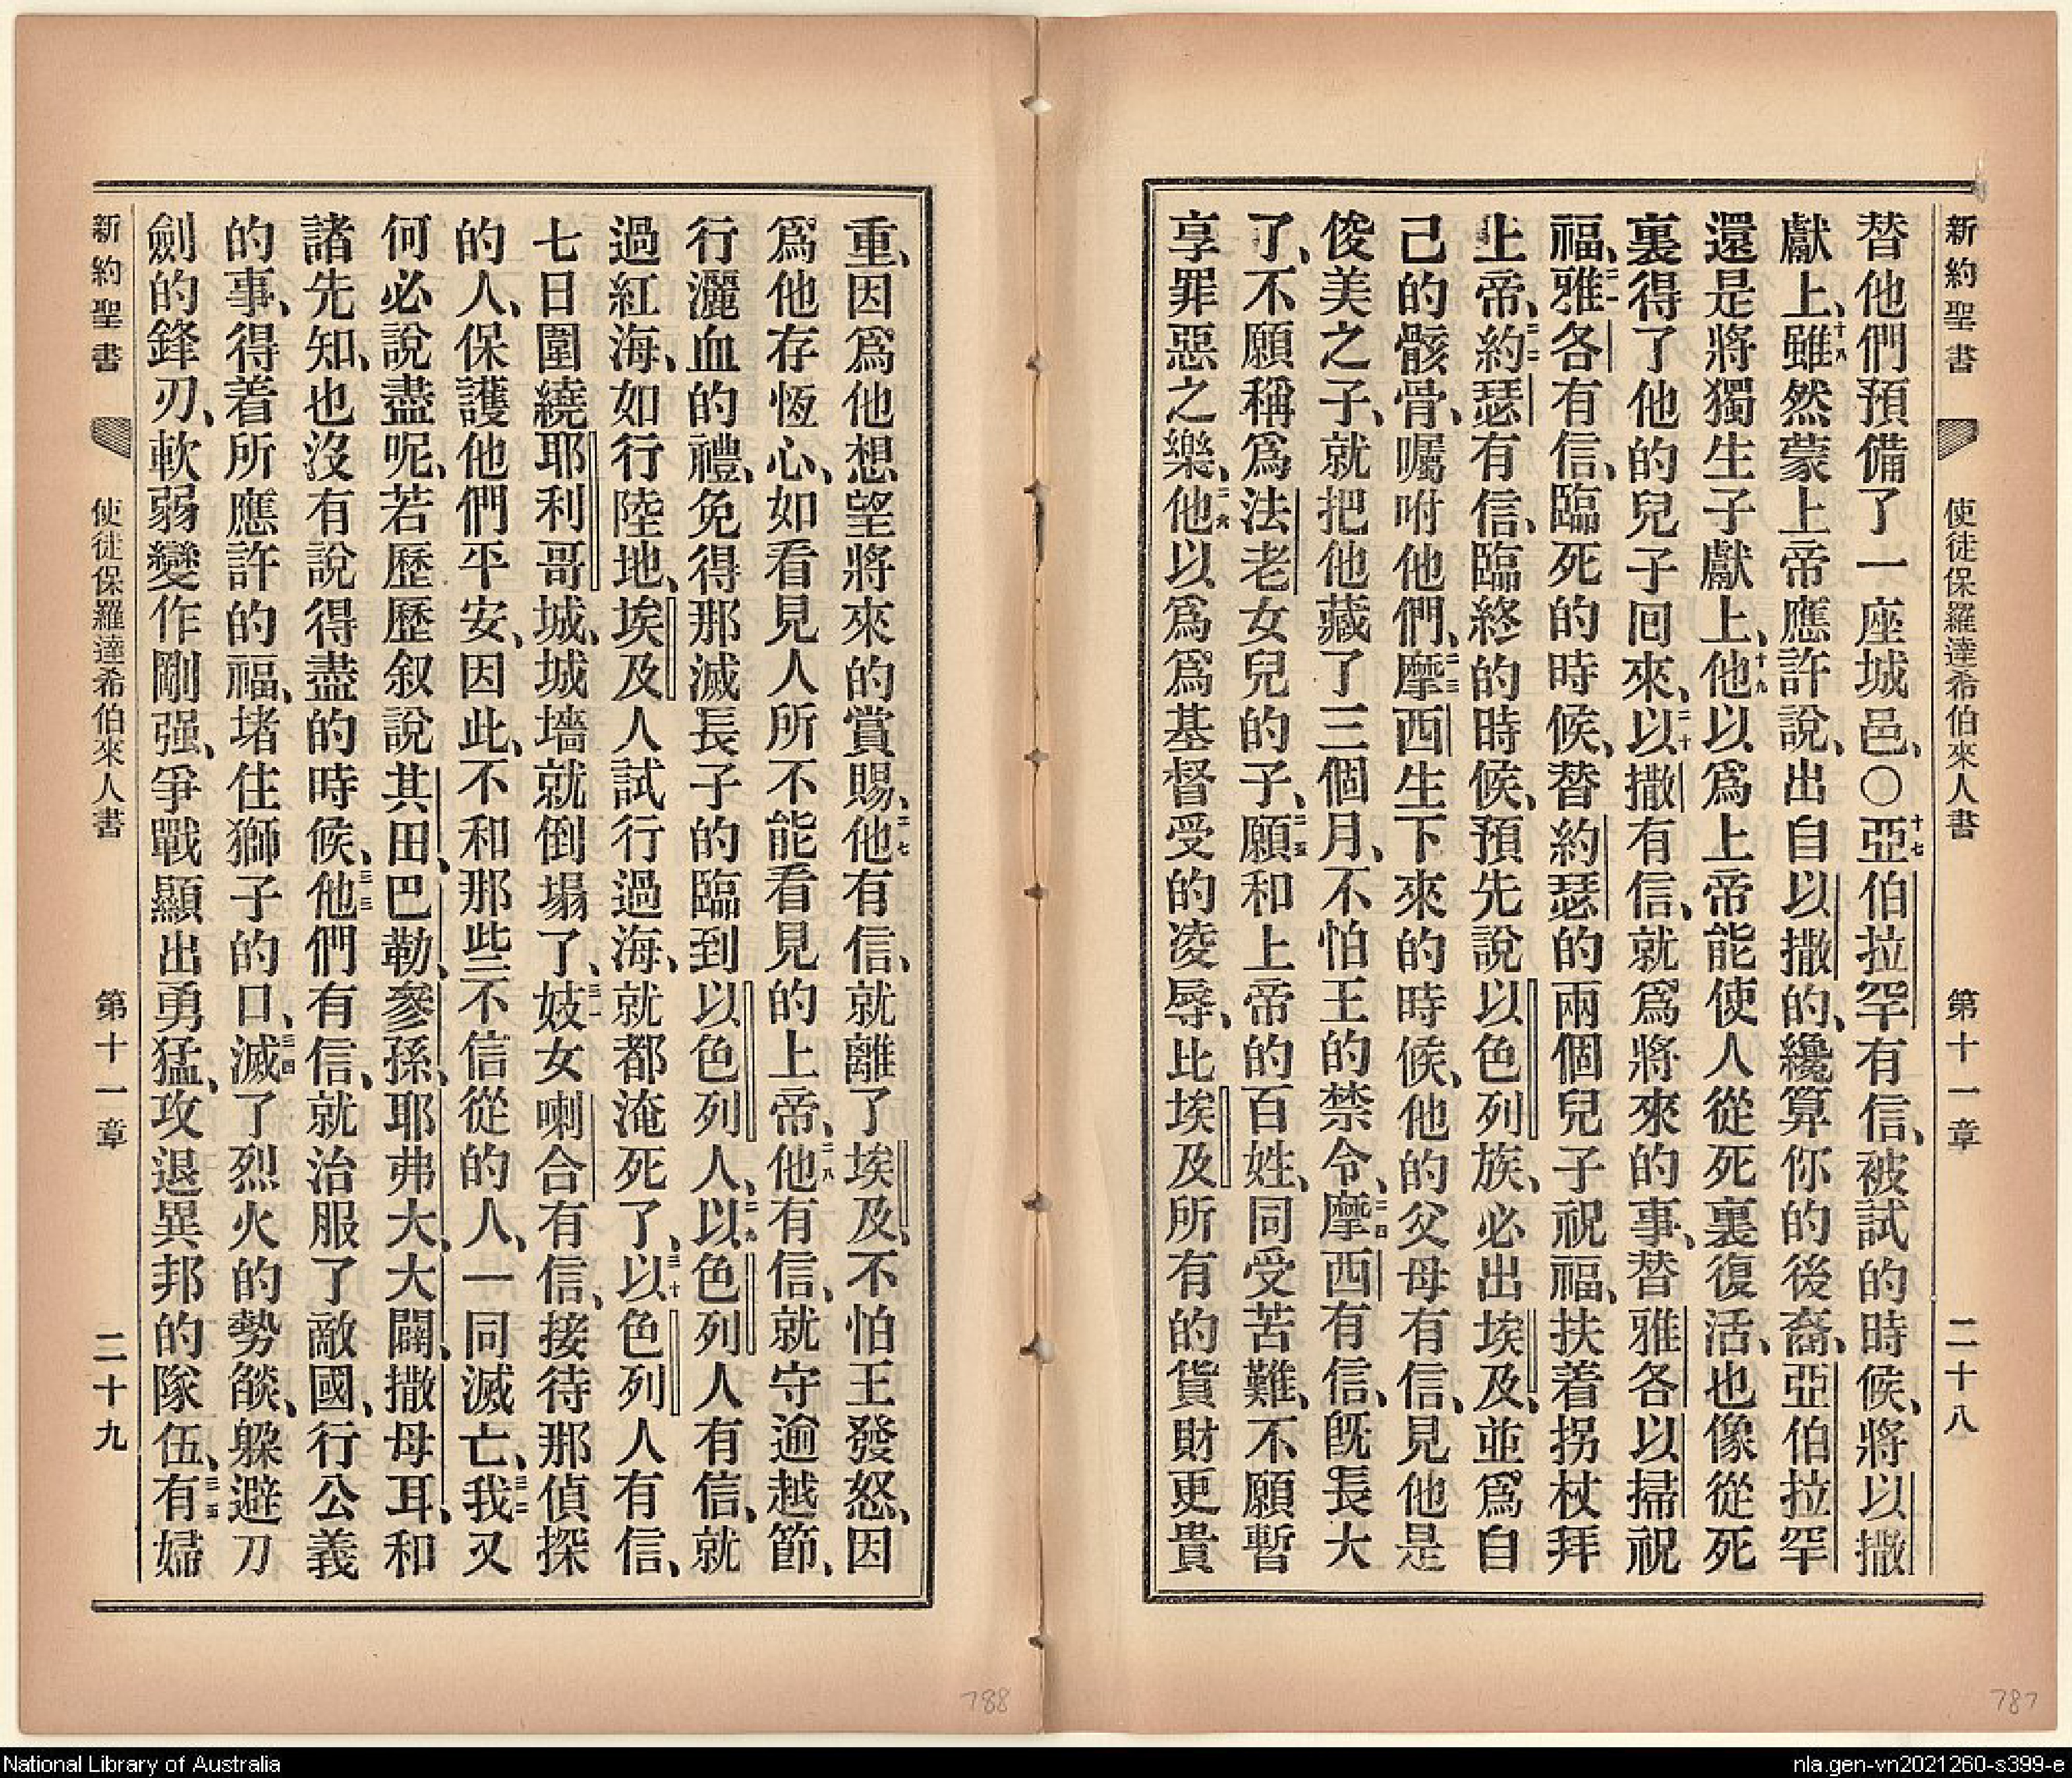 新約聖書 使徒保羅達希伯來人書 第十一章 二十八
替他們預備了一座城邑、〇十七亞伯拉罕有信、被試的時候、將以撒
獻上、十八雖然蒙上帝應許說、出自以撒的、纔算你的後裔、亞伯拉罕
還是將獨生子獻上、十九他以爲上帝能使人從死裏復活、也像從死
裏得了他的兒子囘來、二十以撒有信、就爲將來的事、替雅各以掃祝
福、二一雅各有信、臨死的時候、替約瑟的兩個兒子祝福、扶着拐杖拜
上帝、二二約瑟有信、臨終的時候、預先說以色列族、必出埃及、並爲自
己的骸骨、囑咐他們、二三摩西生下來的時候、他的父母有信、見他是
俊美之子、就把他藏了三個月、不怕王的禁令、二四摩西有信、旣長大
了、不願稱爲法老女兒的子、二五願和上帝的百姓、同受苦難、不願暫
享罪惡之樂、二六他以爲爲基督受的凌辱、比埃及所有的貨財更貴
重、因爲他想望將來的賞賜、二七他有信、就離了埃及、不怕王發怒、因
爲他存恆心、如看見人所不能看見的上帝、二八他有信、就守逾越節、
行灑血的禮、免得那滅長子的臨到以色列人、二九以色列人有信、就
過紅海、如行陸地、埃及人試行過海、就都淹死了、三十以色列人有信、
七日圍繞耶利哥城、城墻就倒塌了、三一妓女喇合有信、接待那偵探
的人、保護他們平安、因此、不和那些不信從的人、一同滅亡、三二我又
何必說盡呢、若歷歷叙說其田、巴勒、參孫、耶弗大、大闢、撒母耳、和
諸先知、也沒有說得盡的時候、三三他們有信、就治服了敵國、行公義
的事、得着所應許的福、堵住獅子的口、三四滅了烈火的勢燄、躲避刀
劍的鋒刃、軟弱變作剛强、爭戰顯出勇猛、攻退異邦的隊伍、三五有婦
新約聖書 使徒保羅達希伯來人書 第十一章 二十九
788
787
National Library of Australia
nla.gen-vn2021260-s399-e